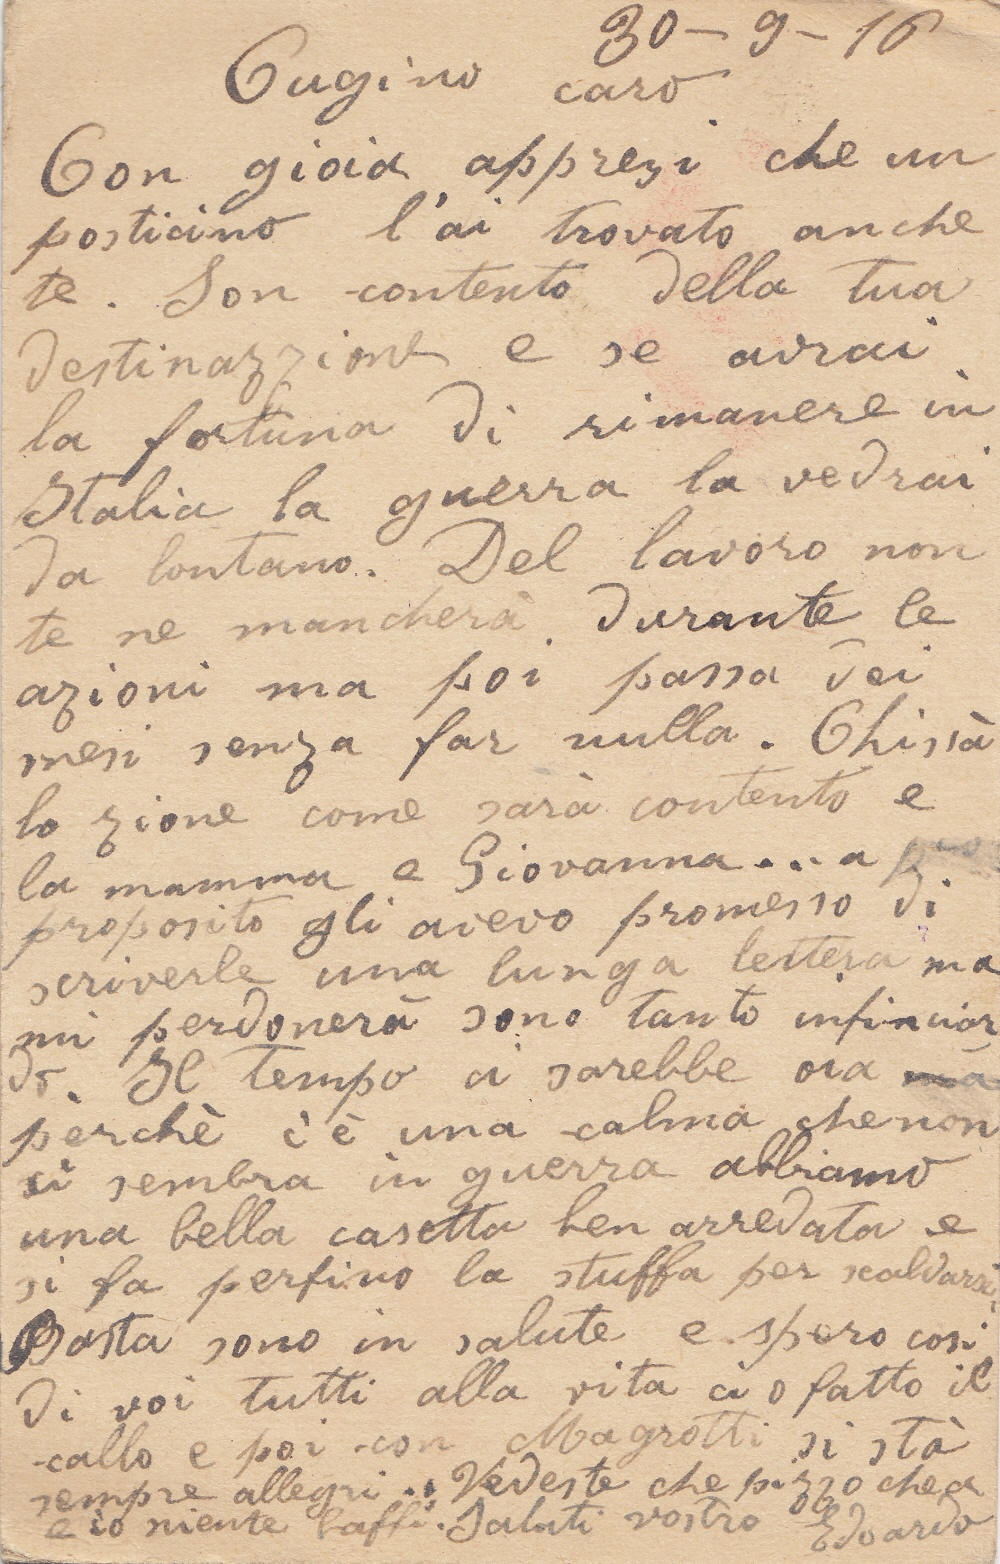 30-9-16
Cugino caro
Con gioia apprezi che un
posticino l'ai trovato anche
te. Son contento della tua
destinazzione e se avrai
la fortuna di rimanere in
Italia la guerra la vedrai
da lontano. Del lavoro non
te ne mancherà durante le
azioni ma poi passa dei
mesi senza far nulla. Chissà
lo zione come sarà contento e
la mamma e Giovanna... a
proposito gli avevo promesso di
scriverle una lunga lettera ma
mi perdonerà sono tanto infincior
do. Il tempo ci sarebbe ora
perchè c'è una calma che non
ci sembra in guerra abbiamo
una bella casetta ben arredata e
si fa perfino la stuffa per scaldarsi.
Basta sono in salute e spero cosi
di voi tutti alla vita ci o fatto il
callo e poi con Magrotti si stà
sempre allegri... Vedeste che pizzo che a
e io niente baffi. Saluti vostro
Edoardo